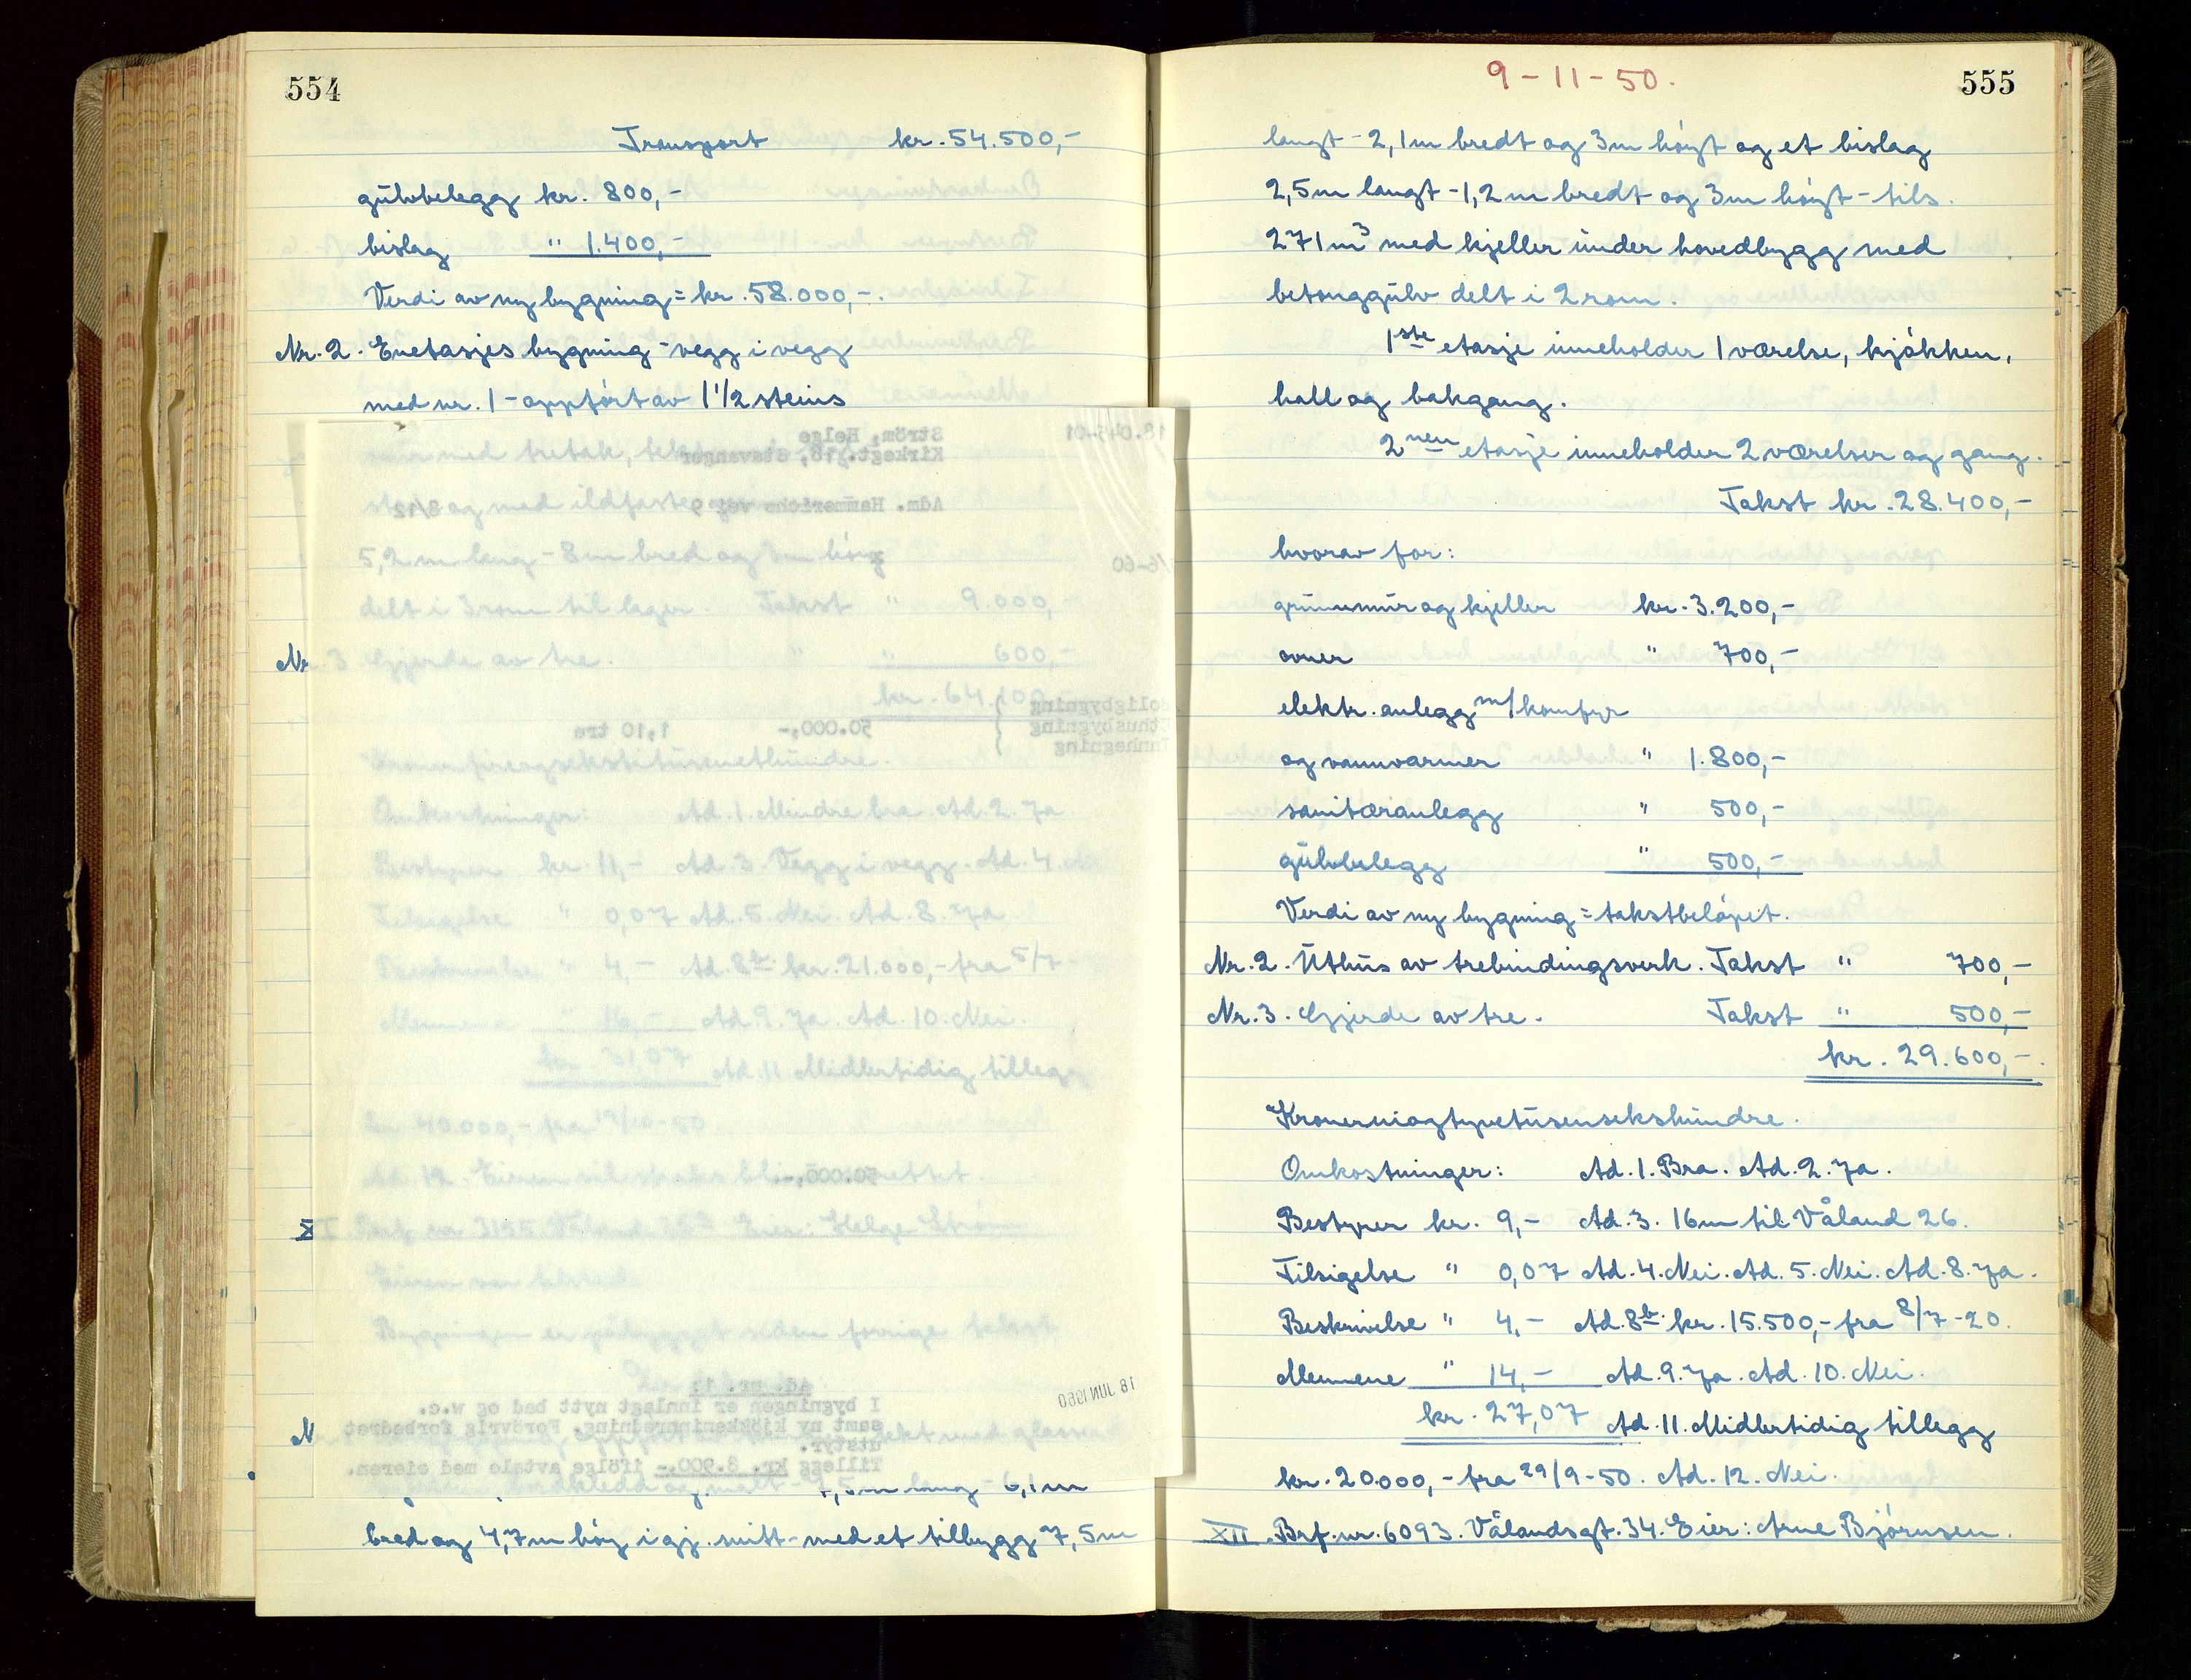 554
Transport kr. 54.500,-
gülvbelegg kr. 800,-
bislag " 1.400,-
Verdi av ny bygning = kr. 58.000,-.
Nr. 2. Enetasjes bygning - vegg i vegg
med nr. 1 - oppført av 1 1/2 steins
mur med tretak,
og med ildfaste
5,2 m lang - 8 m bred og 3 m høy
delt i 3 rom til lager. Takst " 9.000,-
Nr. 3 Gjerde av tre. " " 600,-
kr. 64.100,-
Kronersekstifiretusenetthundre.
Omkostninger: Ad. 1. Mindre bra. Ad. 2. Ja
Bestyrer kr. 11,- Ad. 3. Vegg i vegg. Ad. 4.
Tilsigelse " 0,07 Ad. 5. Nei. Ad. 8. Ja
Beskrivelse " 4,- Ad. 8b. kr. 21.000,- fra 5/7-
Mennene " 16,- Ad. 9. Ja. Ad. 10. Nei.
kr. 31,07 Ad. 11 Midlertidig tillegg
kr. 40.000,- fra
Ad. 12. Eieren
XI Brf. nr. 3155 Våland Eier: Helge Strøm
Eieren var tilstede
Bygningen er påbygget siden forrige takst
Ström, Helge
Kirkegt. 18, Stavanger
Adm. Hammerichs veg 9
18.045-01
/6-60
Boligbygning
Uthusbygning
Innhegning
50.000,- 1,10 tre
50.000,-
18 JUN 1960
Ad. nr. 1:
I bygningen er innlagt nytt bad og w.c.
samt ny kjökkeninnredning. Forövrig forbedret
utstyr.
Tillegg kr. 8.900,- ifölge avtale med eieren.
bordkledd og malt - 7,5 m lang - 6,1 m
bred og 4,7 m høy i gj. snitt - med et tilbygg 7,5 m
9-11-50.
555
langt - 2,1 m bredt og 3 m høyt og et bislag
2,5 m langt - 1,2 m bredt og 3 m høyt - tils.
271 m³ med kjeller ünder hovedbygg med
betonggülv delt i 2 rom.
1ste etasje inneholder 1 værelse, kjøkken,
hall og bakgang.
2nen etasje inneholder 2 værelser og gang.
Takst kr. 28.400,-
hvorav for:
grünnmür og kjeller kr. 3.200,-
ovner " 700,-
elektr. anlegg m/komfyr
og vannvarmer " 1.800,-
sanitæranlegg " 500,-
gülvbelegg " 500,-
Verdi av ny bygning = takstbeløpet.
Nr. 2. Uthüs av trebindingsverk. Takst " 700,-
Nr. 3. Gjerde av tre. Takst " 500,-
kr. 29.600,-.
Kronerniogtyvetüsensekshündre.
Omkostninger: Ad. 1. Bra. Ad. 2. Ja.
Bestyrer kr. 9,- Ad. 3. 16 m til Våland 26.
Tilsigelse " 0,07 Ad. 4. Nei. Ad. 5. Nei. Ad. 8. Ja.
Beskrivelse " 4,- Ad. 8b. kr. 15.500,- fra 8/7-20.
Mennene " 14,- Ad. 9. Ja. Ad. 10. Nei.
kr. 27,07 Ad. 11. Midlertidig tillegg
kr. 20.000,- fra 29/9-50. Ad. 12. Nei.
XII. Brf. nr. 6093. Vålandsgt. 34. Eier: Arne Bjørnsen.